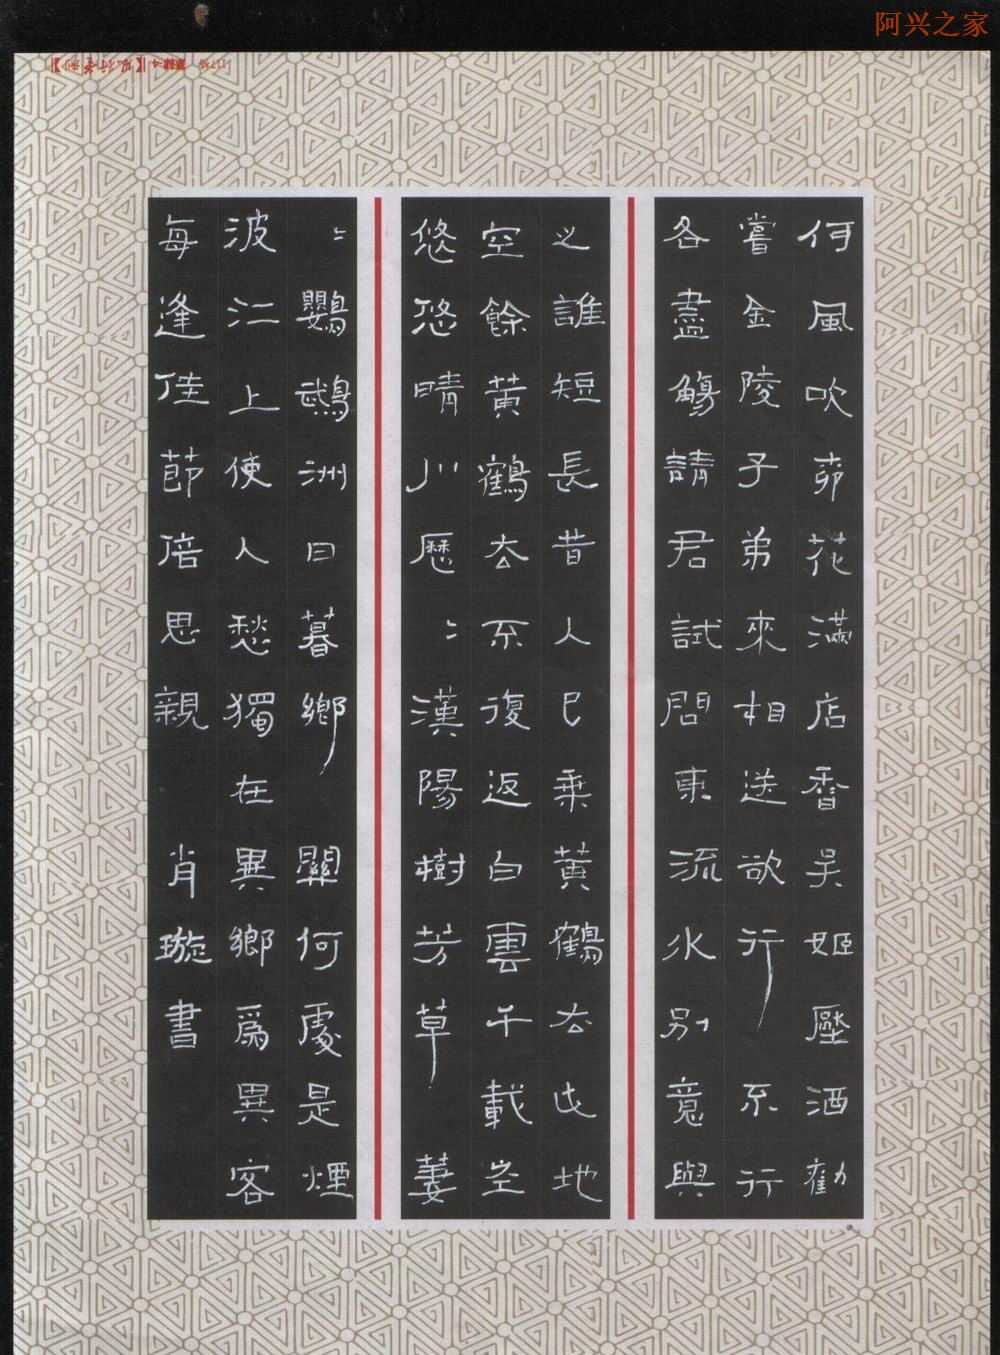 阿兴之家
何風吹茆花滿店香吳姬壓酒勸
嘗金陵子弟來相送欲行不行
各盡觴請君試問東流水別意與
之誰短長昔人已乘黃鶴去此地
空餘黃鶴去不復返白雲千載空
悠悠晴川歷々漢陽樹芳草萋
々鸚鵡洲日暮鄉關何處是煙
波江上使人愁獨在異鄉爲異客
每逢佳節倍思親 肖璇書